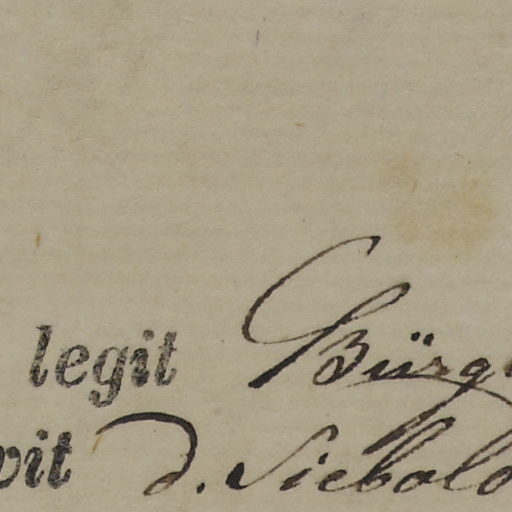 legit Bürg
vit d. Siebold